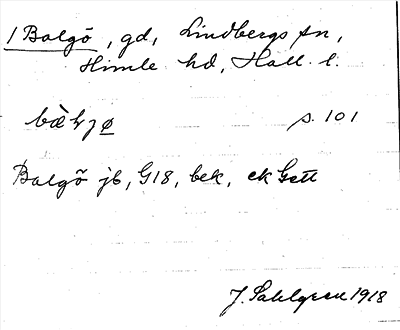 1 Balgö, gd, Lindbergs sn,
Himle hd, Hall. l.
s. 101
Balgö jb, G18, bek, ek Gstl
J. Sahlgren 1918